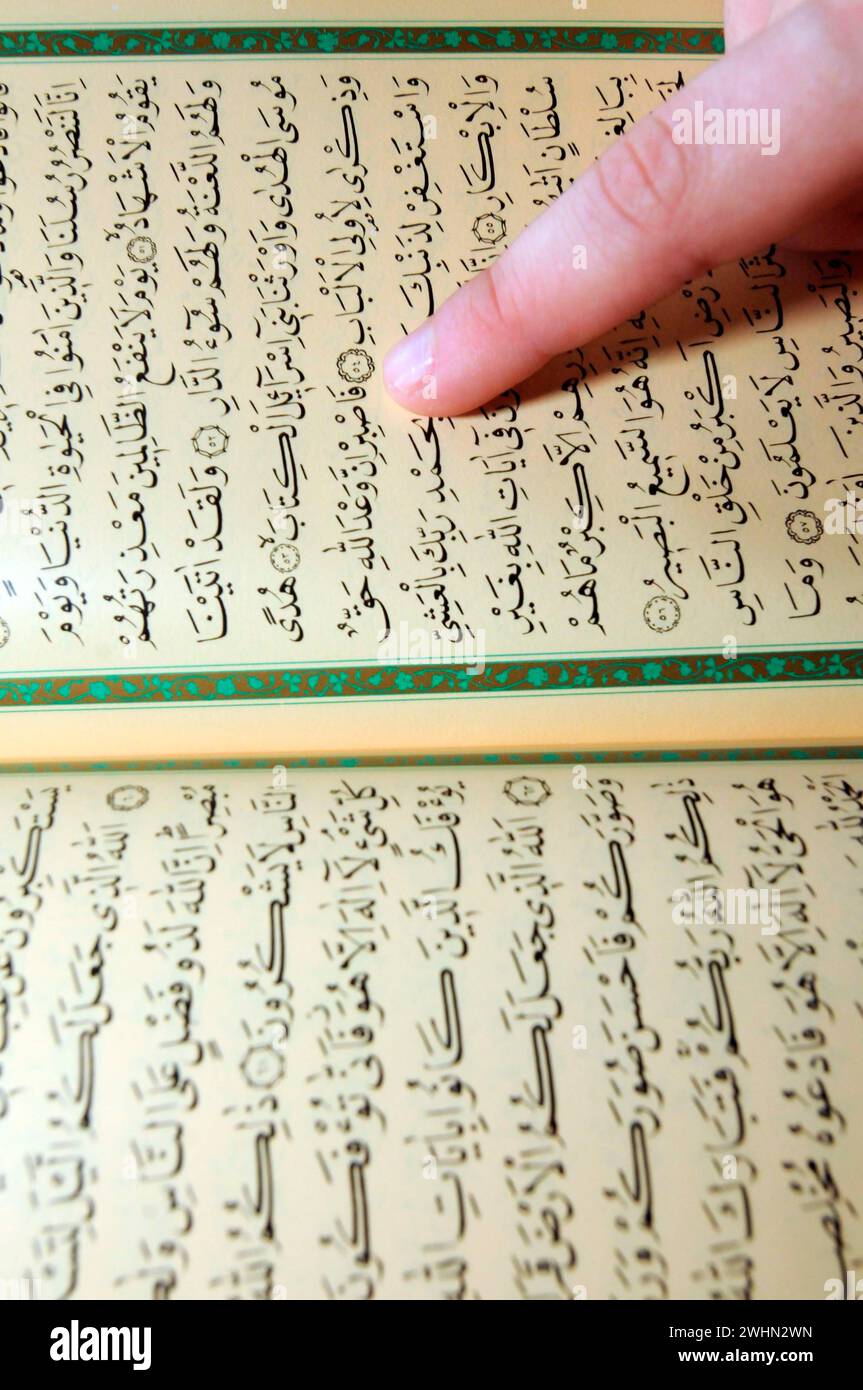 اِنَّا لَنَنْصُرُ رُسُلَنَا وَالَّذ۪ينَ اٰمَنُوا فِي الْحَيٰوةِ الدُّنْيَا وَيَوْمَ
يَقُومُ الْاَشْهَادُۙ ﴿٥١﴾ يَوْمَ لَا يَنْفَعُ الظَّالِم۪ينَ مَعْذِرَتُهُمْ
وَلَهُمُ اللَّعْنَةُ وَلَهُمْ سُٓوءُ الدَّارِ ﴿٥٢﴾ وَلَقَدْ اٰتَيْنَا
مُوسَى الْهُدٰى وَاَوْرَثْنَا بَن۪ٓي اِسْرَٓائ۪لَ الْكِتَابَۙ ﴿٥٣﴾ هُدًى
وَذِكْرٰى لِاُو۬لِي الْاَلْبَابِ ﴿٥٤﴾ فَاصْبِرْ اِنَّ وَعْدَ اللّٰهِ حَقٌّ
وَاسْتَغْفِرْ لِذَنْبِكَ بِحَمْدِ رَبِّكَ بِالْعَشِيِّ
وَالْاِبْكَارِ ﴿٥٥﴾ ف۪ٓي اٰيَاتِ اللّٰهِ بِغَيْرِ
سُلْطَانٍ اِلَّا كِبْرٌ مَا هُمْ
اللّٰهِ هُوَ السَّم۪يعُ الْبَص۪يرُ ﴿٥٦﴾
اَكْبَرُ مِنْ خَلْقِ النَّاسِ
النَّاسِ لَا يَعْلَمُونَ ﴿٥٧﴾ وَمَا
وَالْبَص۪يرُ وَالَّذ۪ينَ
يَسْتَكْبِرُونَ عَنْ
﴿٦٠﴾ اَللّٰهُ الَّذ۪ي جَعَلَ لَكُمُ الَّيْلَ
مُبْصِرًا اِنَّ اللّٰهَ لَذُو فَضْلٍ عَلَى النَّاسِ
النَّاسِ لَا يَشْكُرُونَ ﴿٦١﴾ ذٰلِكُمُ اللّٰهُ
كُلِّ شَيْءٍ لَٓا اِلٰهَ اِلَّا هُوَ فَاَنّٰى تُؤْفَكُونَ
يُؤْفَكُ الَّذ۪ينَ كَانُوا بِاٰيَاتِ اللّٰهِ
﴿٦٣﴾ اَللّٰهُ الَّذ۪ي جَعَلَ لَكُمُ الْاَرْضَ
وَصَوَّرَكُمْ فَاَحْسَنَ صُوَرَكُمْ
ذٰلِكُمُ اللّٰهُ رَبُّكُمْ فَتَبَارَكَ اللّٰهُ
هُوَ الْحَيُّ لَٓا اِلٰهَ اِلَّا هُوَ فَادْعُوهُ
اَلْحَمْدُ لِلّٰهِ
alamy
Image ID: 2WHN2WN
www.alamy.com